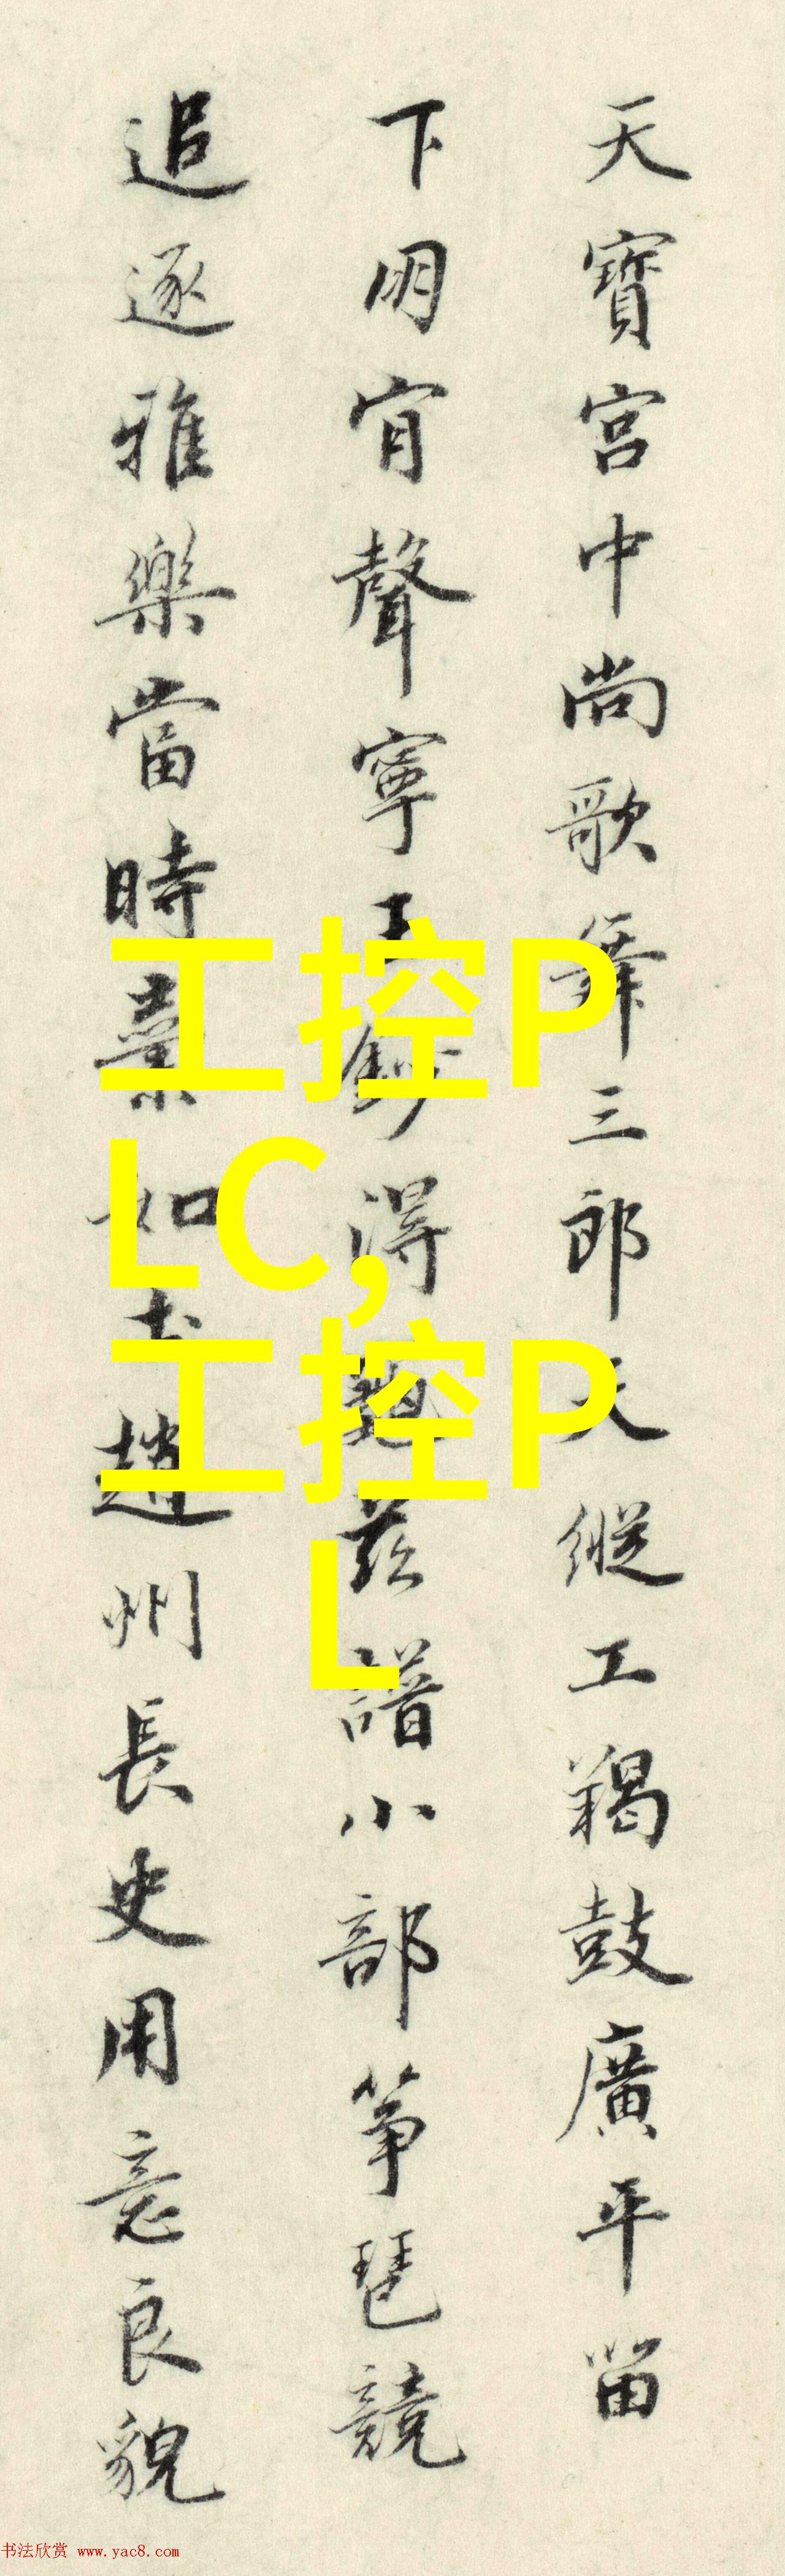 天寶宮中尚歌舞三郎天縱工羯鼓廣平留
下朋肎聲寧王得茲譜小部箏琶競
追逐雅樂當時棄如土趙州長史用意良貌
工控P
LC,
工控P
L
书法欣赏 www.yac8.com